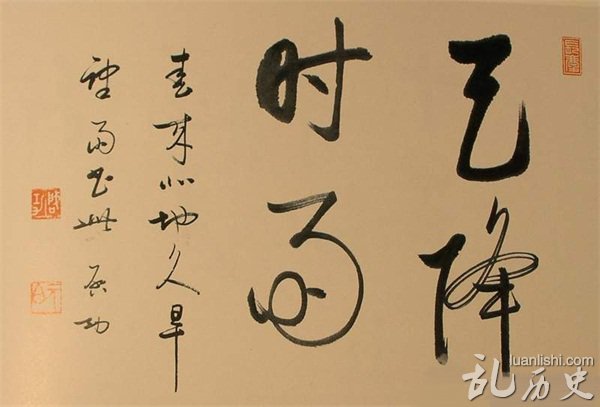 天降
时雨
春来北地久旱
望雨书此 启功
luanlishi.com
乱历史